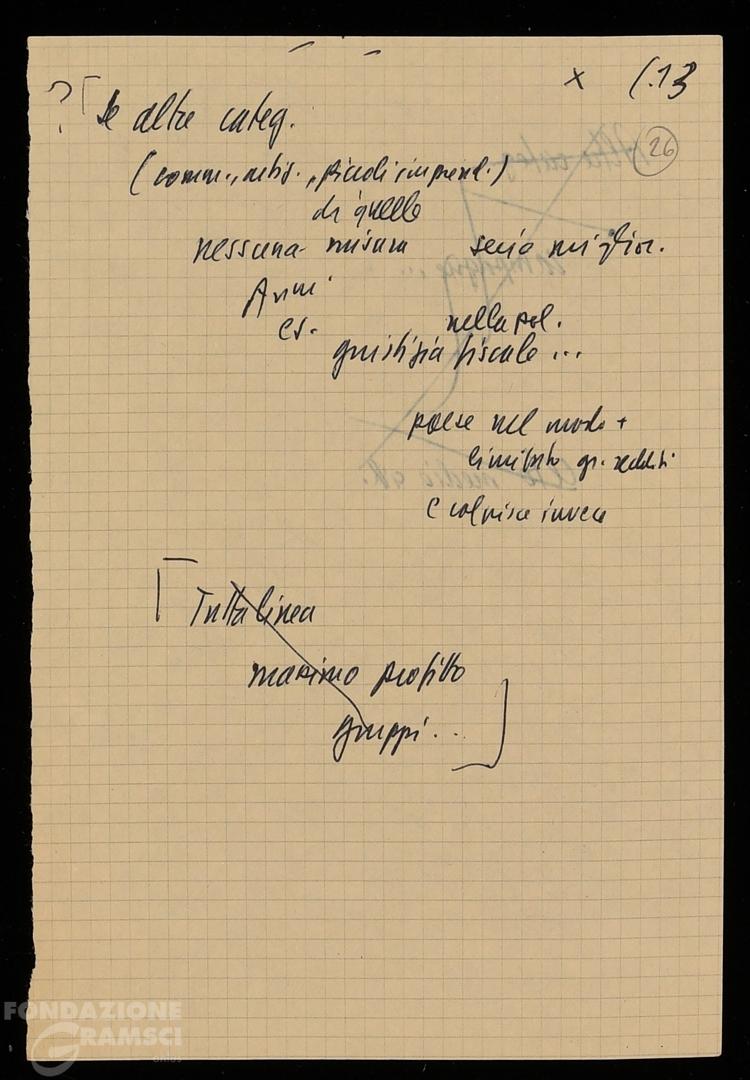 x (.13
26
? [ Se altre categ.
(comm., artig., piccoli imprend.)
di quelle
nessuna misura serio miglior.
Anni
es. nella pol.
giustizia fiscale ...
paese nel modo +
limitato gr. redditi
e colpisce invece
[ Tutta linea
massimo profitto
gruppi .. ]
FONDAZIONE
GRAMSCI
onlus